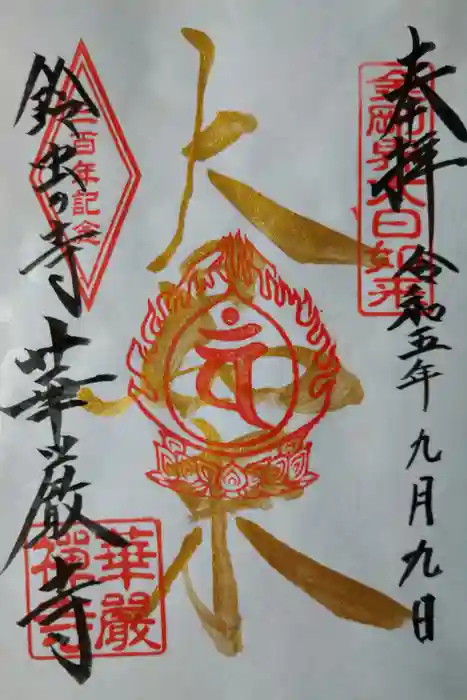 奉拝
金剛界大日如来
令和五年九月九日
大
三百年記念
鈴虫の寺
華厳寺
華嚴
禪寺